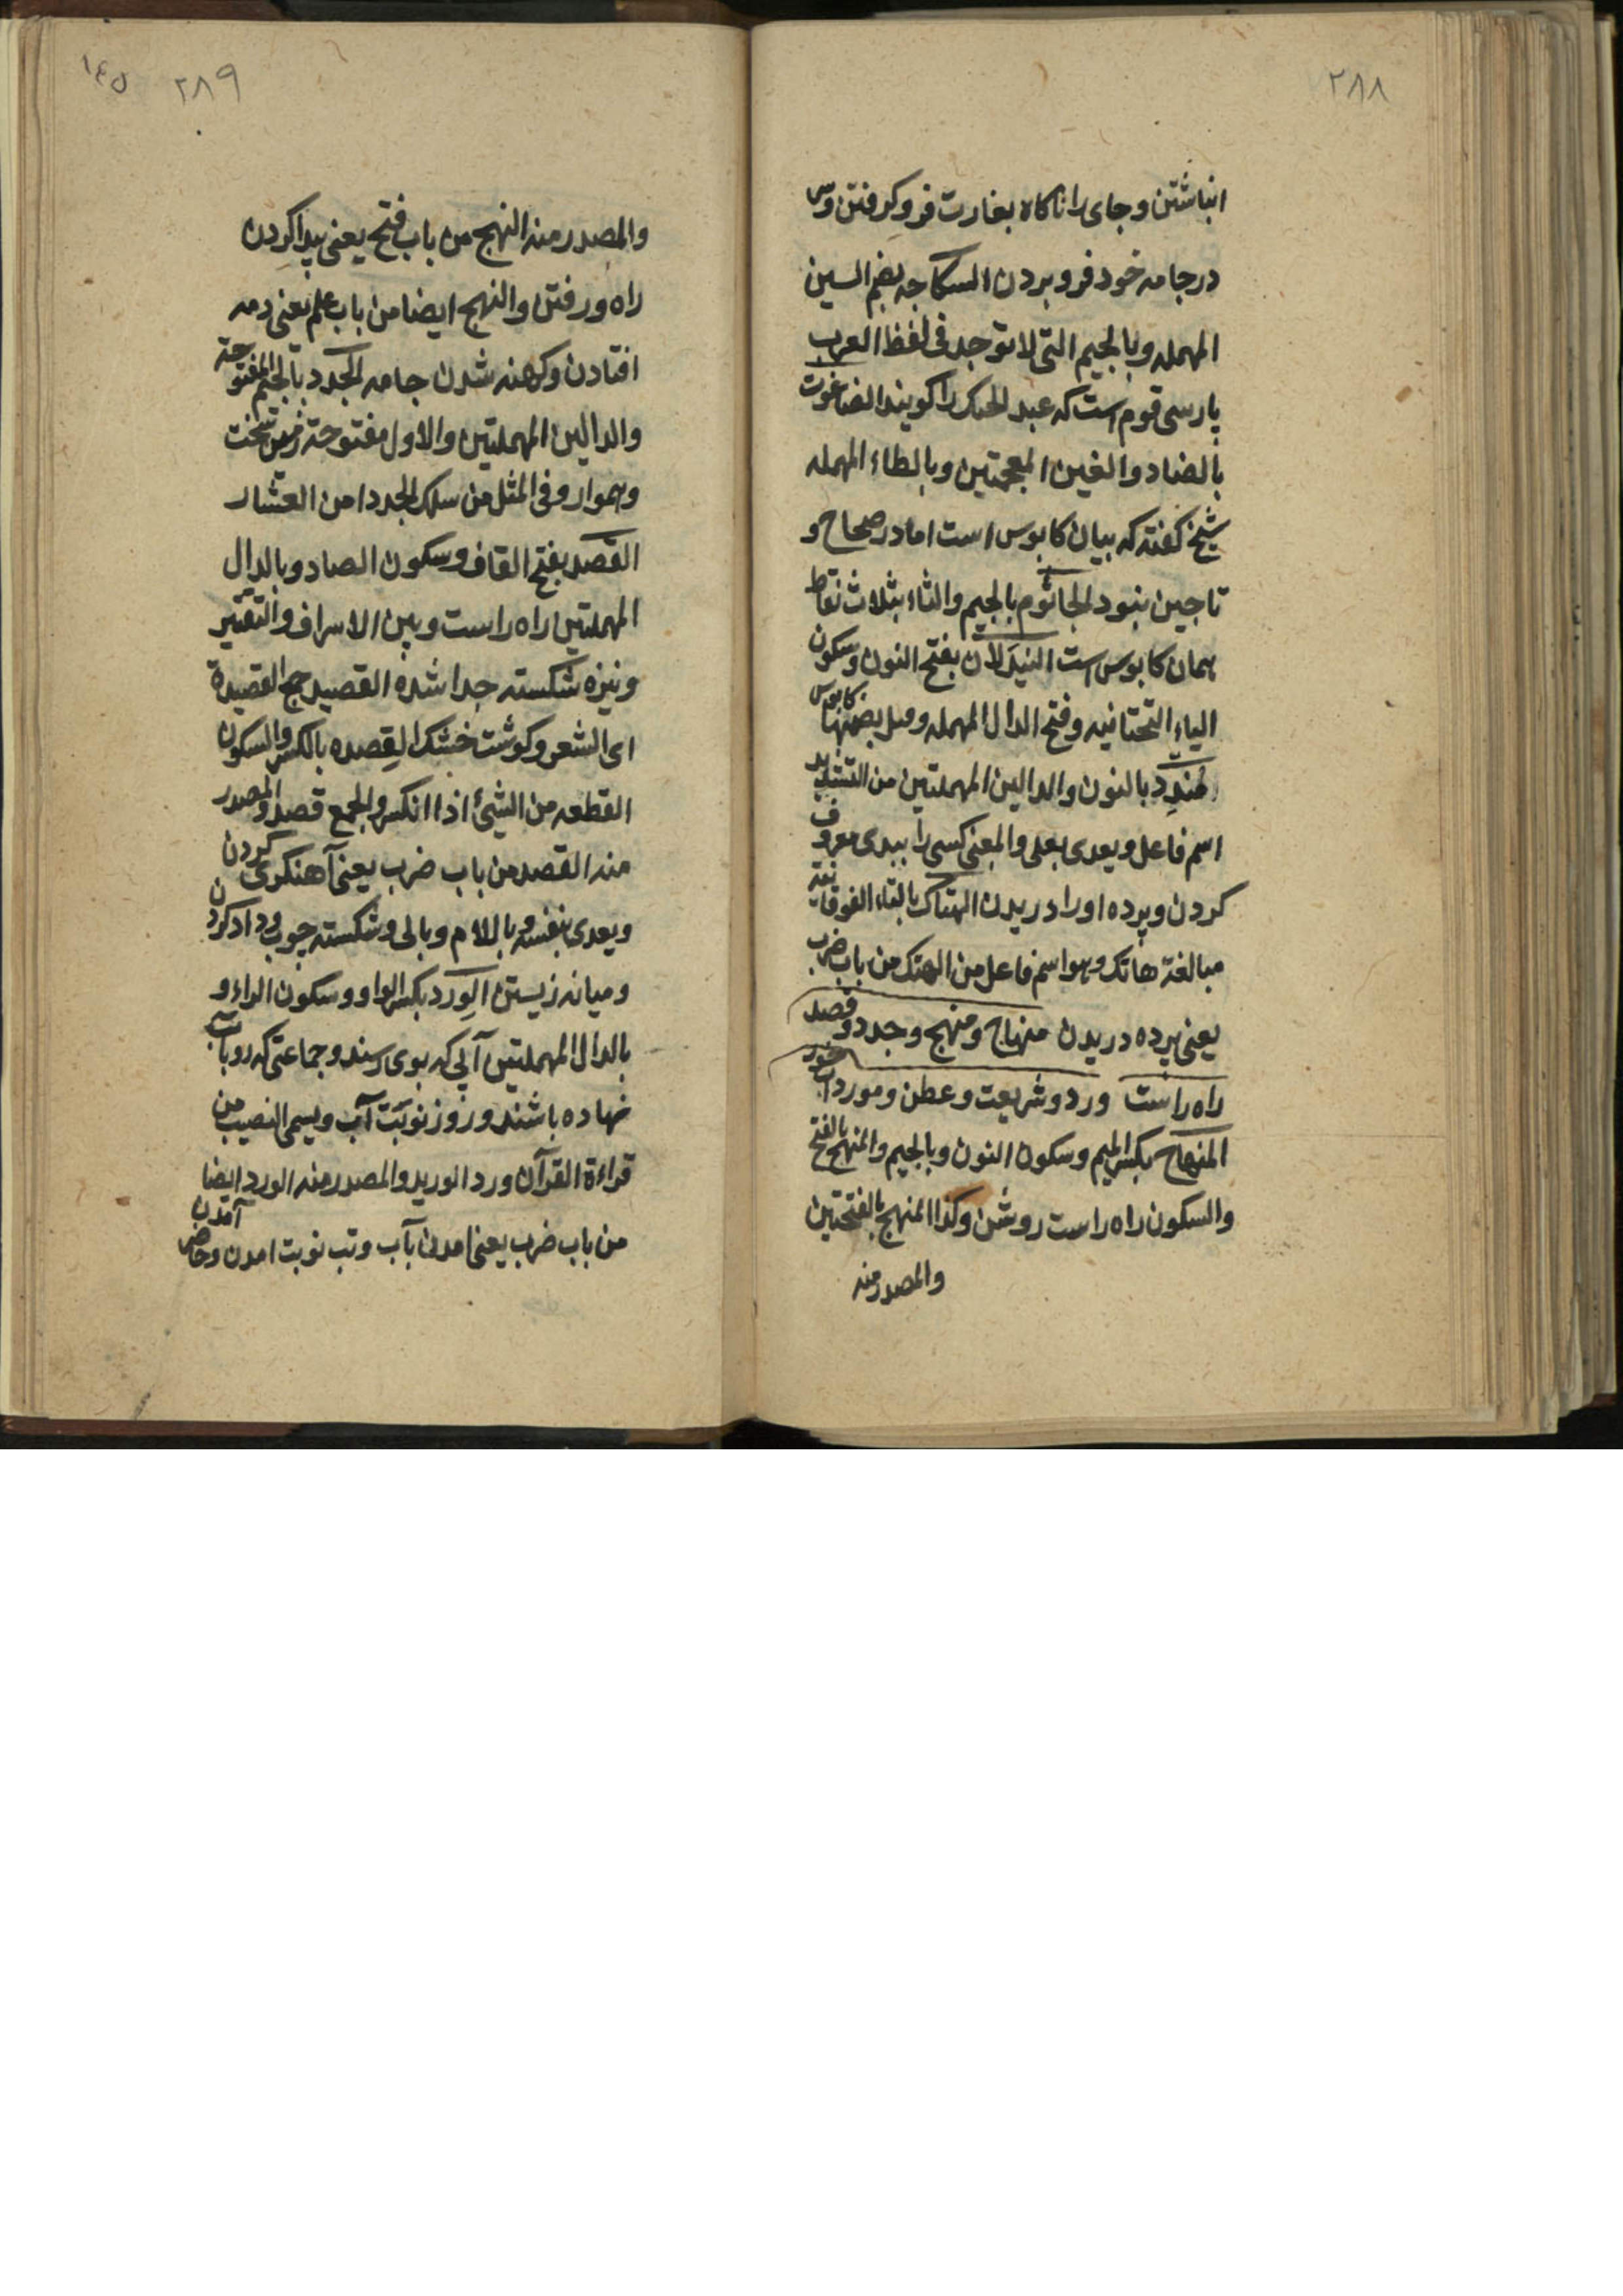 ٢٨٨
انباشتن و جای را ناکاه بغارت فرو کرفتن و سر
در جامه خود فرو بردن السکاجه بضم السین
المهمله وبالجیم التی لا توجد فی لفظ العرب
پارسی قوم است که عبد الجنک را کویند الضاغوت
بالضاد والغین المعجمتین وبالطاء المهمله
شیخ کفته که بیان کابوس است اما در صحاح و
تاجین نبود الجاثوم بالجیم والثاء بثلاث نقاط
همان کابوس است النیدلان بفتح النون وسکون
الیاء التحتانیه وفتح الدال المهمله وقیل بضمها کابوس
مندد بالنون والدالین المهملتین من التندید
اسم فاعل ویعدی بعلی والمعنی کسی را ببدی معروف
کردن و پرده او را دریدن الهتاک بالتاء الفوقانیة
مبالغة هاتک وهو اسم فاعل من الهتک من باب ضرب
یعنی پرده دریدن منهاج ومنهج وجدد وقصد
راه راست ورد وشریعت وعطن ومورد آب خور
المنهاج بکسر المیم وسکون النون وبالجیم والمنهج بالفتح
والسکون راه راست روشن وکذا المنهج بالفتحتین
والمصدر منه
٢٨٩ ١٤٥
والمصدر منه النهج من باب فتح یعنی پیدا کردن
راه ورفتن والنهج ایضا من باب علم یعنی دمه
افتادن وکهنه شدن جامه الجدد بالجیم المفتوحة
والدالین المهملتین والاول مفتوحة زمین سخت
وهموار وفی المثل من سلک الجدد امن العثار
القصد بفتح القاف وسکون الصاد وبالدال
المهملتین راه راست وبین الاسراف والتقتیر
ونیزه شکسته جدا شده القصید جمع القصیدة
ای الشعر وکوشت خشک القصده بالکسر والسکون
القطعه من الشیئ اذا انکسر والجمع قصد والمصدر
منه القصد من باب ضرب یعنی آهنکری کردن
ویعدی بنفسه وباللام وبالی وشکسته چوب وداد کردن
ومیانه زیستن الورد بکسر الواو وسکون الراء و
بالدال المهملتین آبی که بوی رسند وجماعتی که رو بآب
نهاده باشند وروز نوبت آب ویسمی النصیب من
قراءة القرآن ورد الورید والمصدر منه الورد ایضا
من باب ضرب یعنی امدن بآب وتب نوبت امدن وحاضر آمدن